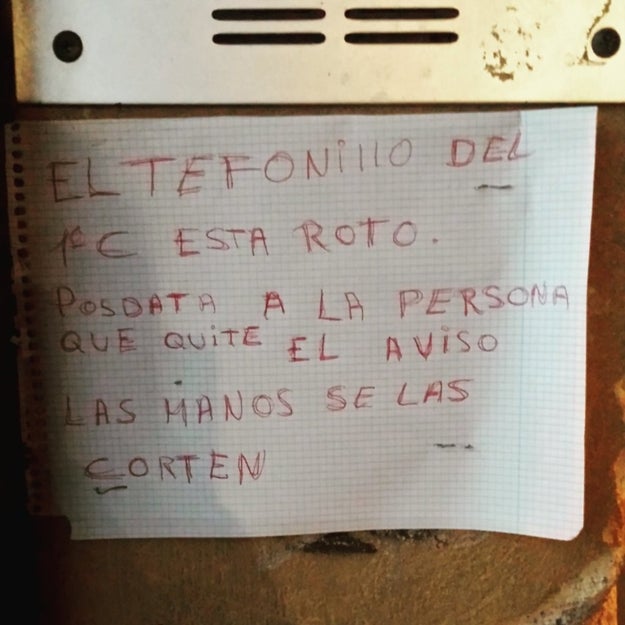 EL TEFONillO DEL
1º C ESTA ROTO.
POSDATA A LA PERSONA
QUE QUiTE EL AViSO
LAS MANOS SE LAS
CORTEN